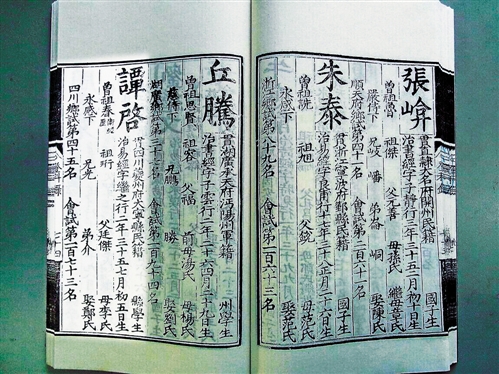 張峅
貫直隸大名府開州民籍 國子生
治詩經字子靜行二年三十五五月初十日生
祖傑 父文喜 母孫氏 繼母章氏
嚴侍下 兄岐 嶓 弟崙 峒 娶陳氏
順天府鄉試第 會試第二百六十一名
朱泰
貫浙江寧波府鄞縣民籍 國子生
治易經字良甫行十年三十八正月二十六日生
曾祖洗 祖旭 父統 母范氏
永感下 娶范氏
浙江鄉試第八十九名 會試第一百六十三名
丘騰
貫湖廣承天府沔陽州軍籍 州學生
治書經字子雲行二年三十四月二十九日生
曾祖思賢 祖容 父福 前母湯氏 母楊氏
慈侍下 兄鵬 勝 娶劉氏
湖廣鄉試第二十二名 會試第二百九十四名
譚啓
貫四川夔州府大寧縣民籍 縣學生
治易經字繼之行二年三十五七月初五日生
曾祖春 祖珩 父廷傑 母李氏
永感下 兄光 弟介 娶鄭氏
四川鄉試第四十五名 會試第一百七十三名